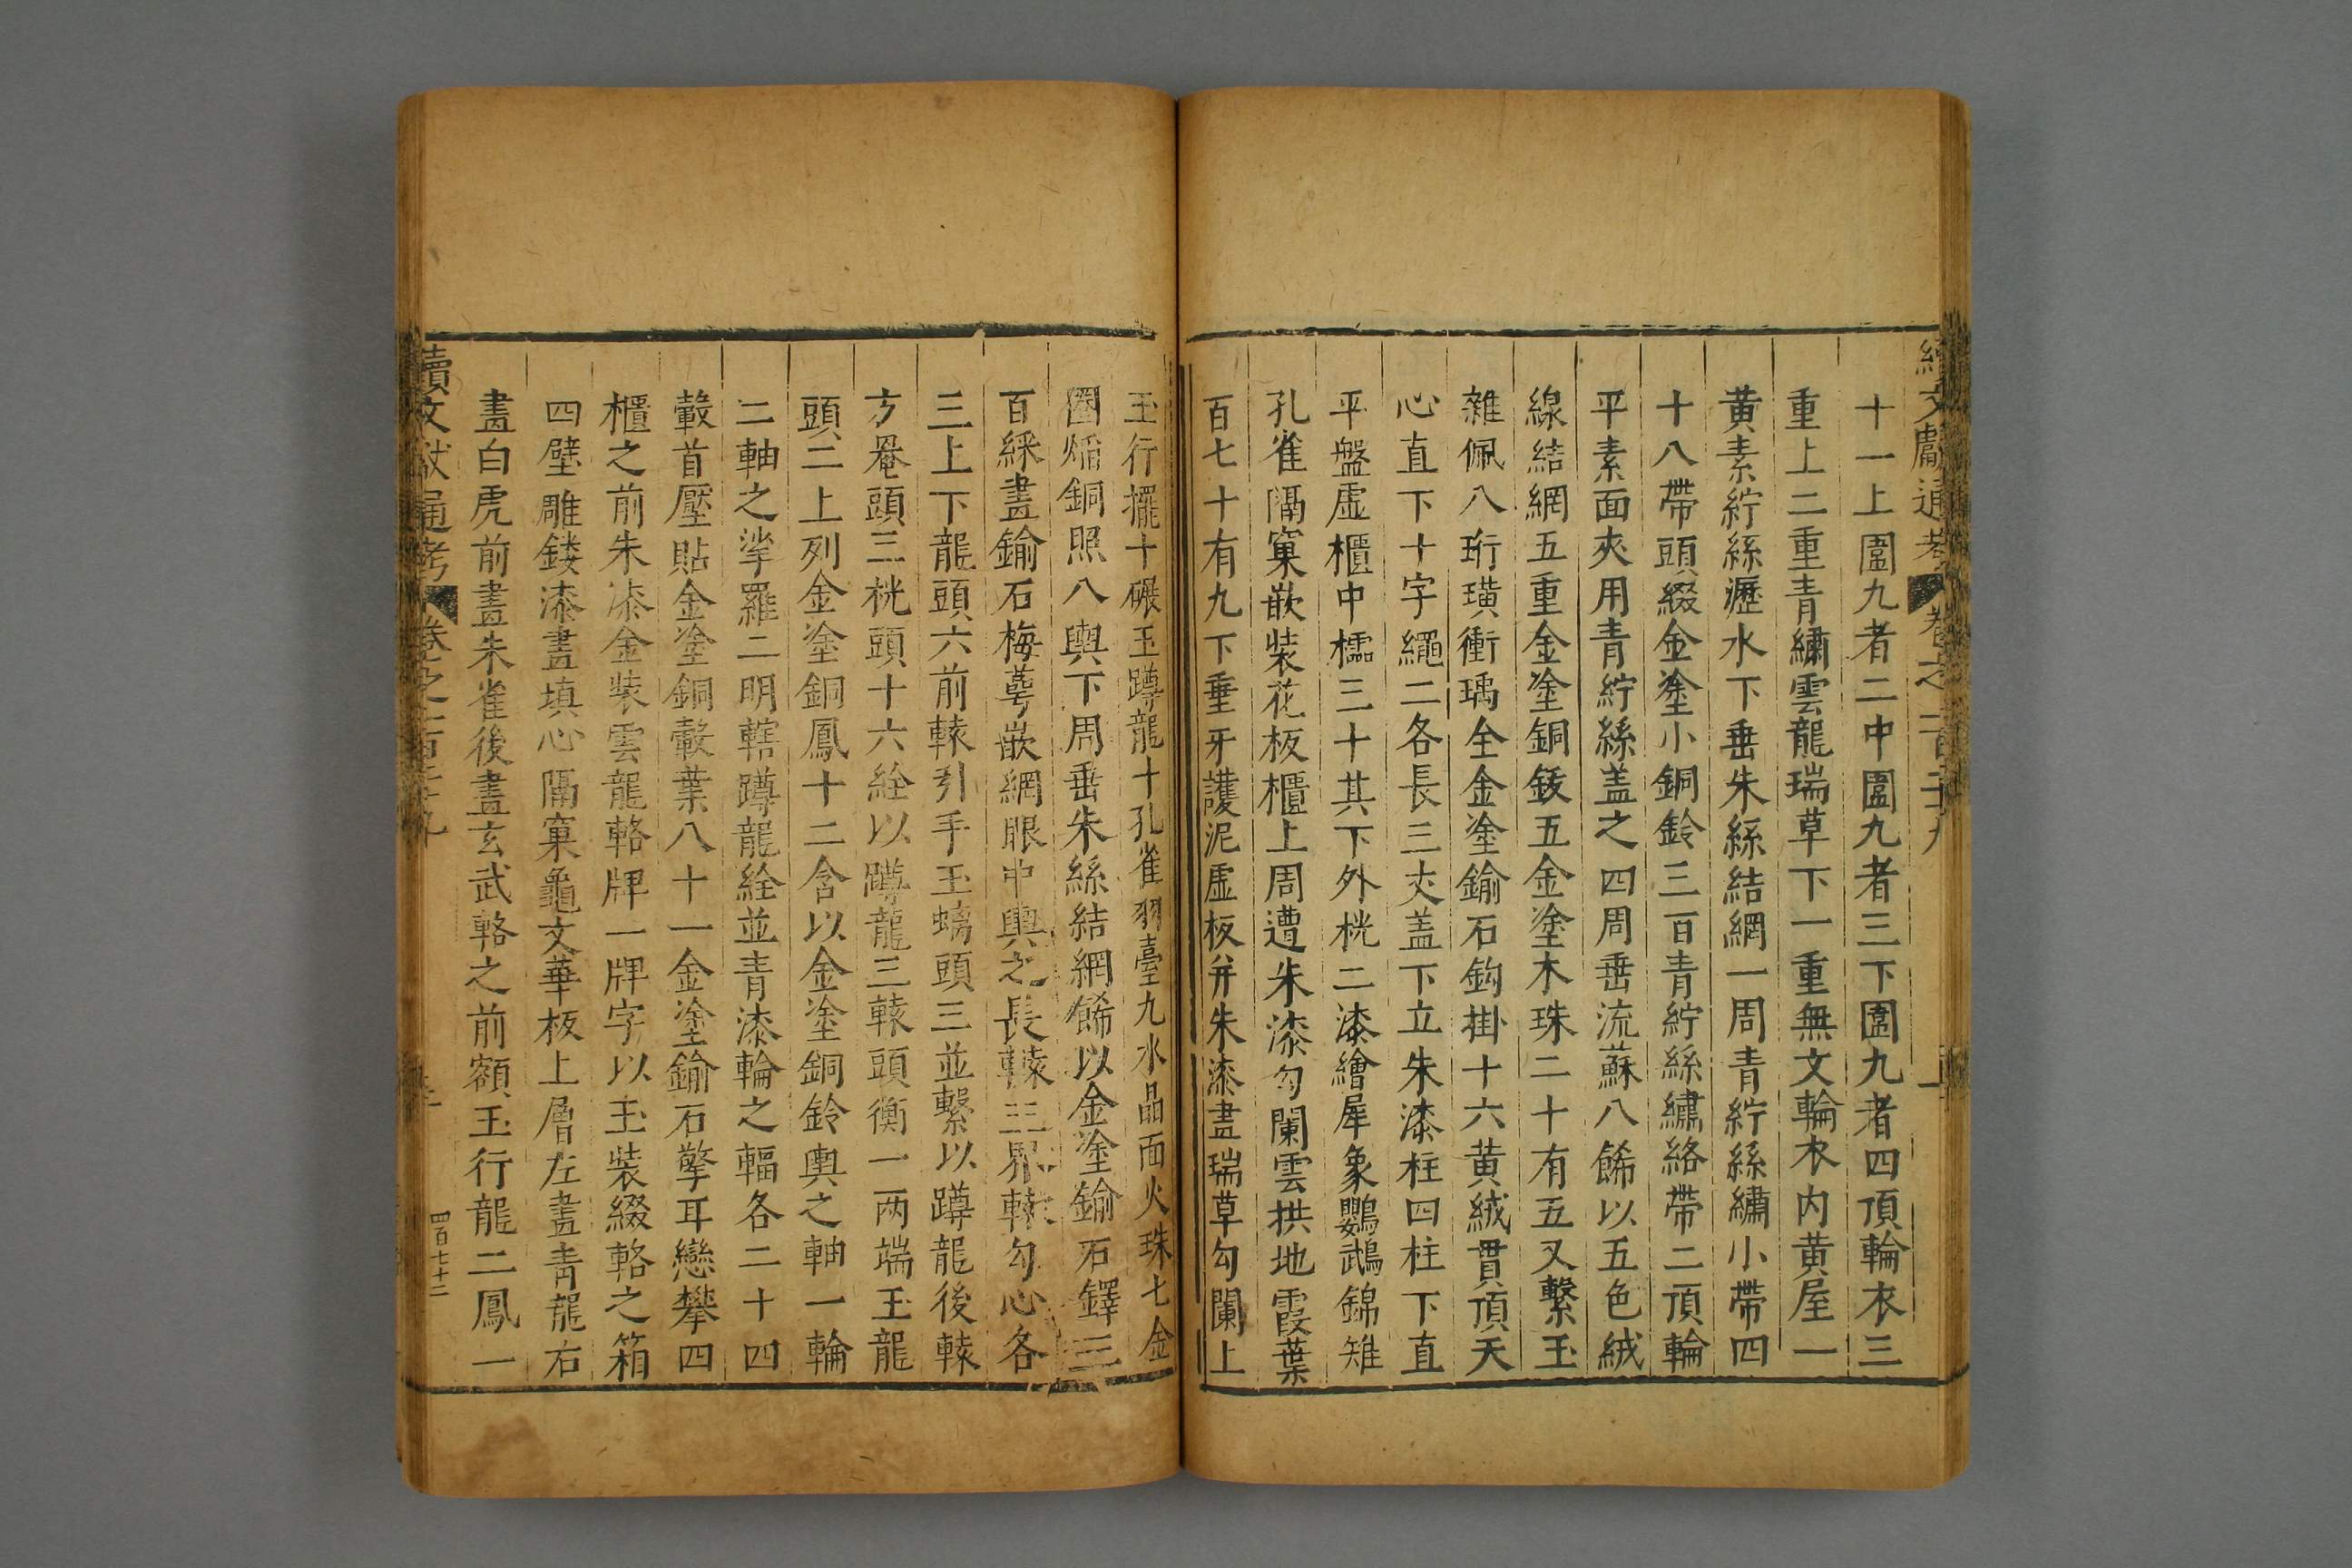 續文獻通考 卷之一百二十九
十一上圍九者二中圍九者三下圍九者四頂輪衣三
重上二重青繡雲龍瑞草下一重無文輪衣内黄屋一
黄素紵絲瀝水下垂朱絲結網一周青紵絲繡小帶四
十八帶頭綴金塗小銅鈴三百青紵絲繡絡帶二頂輪
平素面夾用青紵絲盖之四周垂流蘇八餙以五色絨
線結網五重金塗銅鈸五金塗木珠二十有五又繫玉
雜佩八珩璜衝瑀全金塗鍮石鈎掛十六黄絨貫頂天
心直下十字繩二各長三丈盖下立朱漆柱四柱下直
平盤虛櫃中櫺三十其下外桄二漆繪犀象鸚鵡錦雉
孔雀隔窠嵌装花板櫃上周遭朱漆勾闌雲拱地霞葉
百七十有九下垂牙護泥虛板并朱漆畫瑞草勾闌上
玉行擺十碾玉蹲龍十孔雀羽臺九水晶面火珠七金
圈焔銅照八輿下周垂朱絲結網餙以金塗鍮石鐸三
百綵畫鍮石梅蕚嵌網眼中輿之長轅三界轅勾心各
三上下龍頭六前轅引手玉螭頭三並繫以蹲龍後轅
方罨頭三桄頭十六絟以蹲龍三轅頭衡一两端玉龍
頭二上列金塗銅鳳十二含以金塗銅鈴輿之軸一輪
二軸之挲羅二明轄蹲龍絟並青漆輪之輻各二十四
轂首壓貼金塗銅轂葉八十一金塗鍮石擎耳戀攀四
櫃之前朱漆金装雲龍輅牌一牌字以玉装綴輅之箱
四壁雕鏤漆畫填心隔窠龜文華板上層左畫青龍右
畫白虎前畫朱雀後畫玄武輅之前額玉行龍二鳳一
續文獻通考 卷之一百二十九
四百七十二